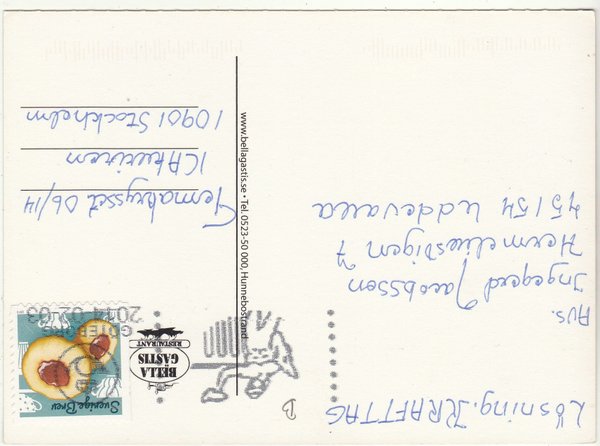 Lösning: KRAFTTAG
Avs.
Ingegerd Jacobsson
Hermelinsvägen 7
45154 Uddevalla
B
www.bellagastis.se • Tel. 0523-50 000, Hunnebostrand
BELLA
GÄSTIS
RESTAURANT
Sverige Brev
GÖTEBORG
2014 02 03
Temakrysset 06/14
ICAkuriren
10901 Stockholm